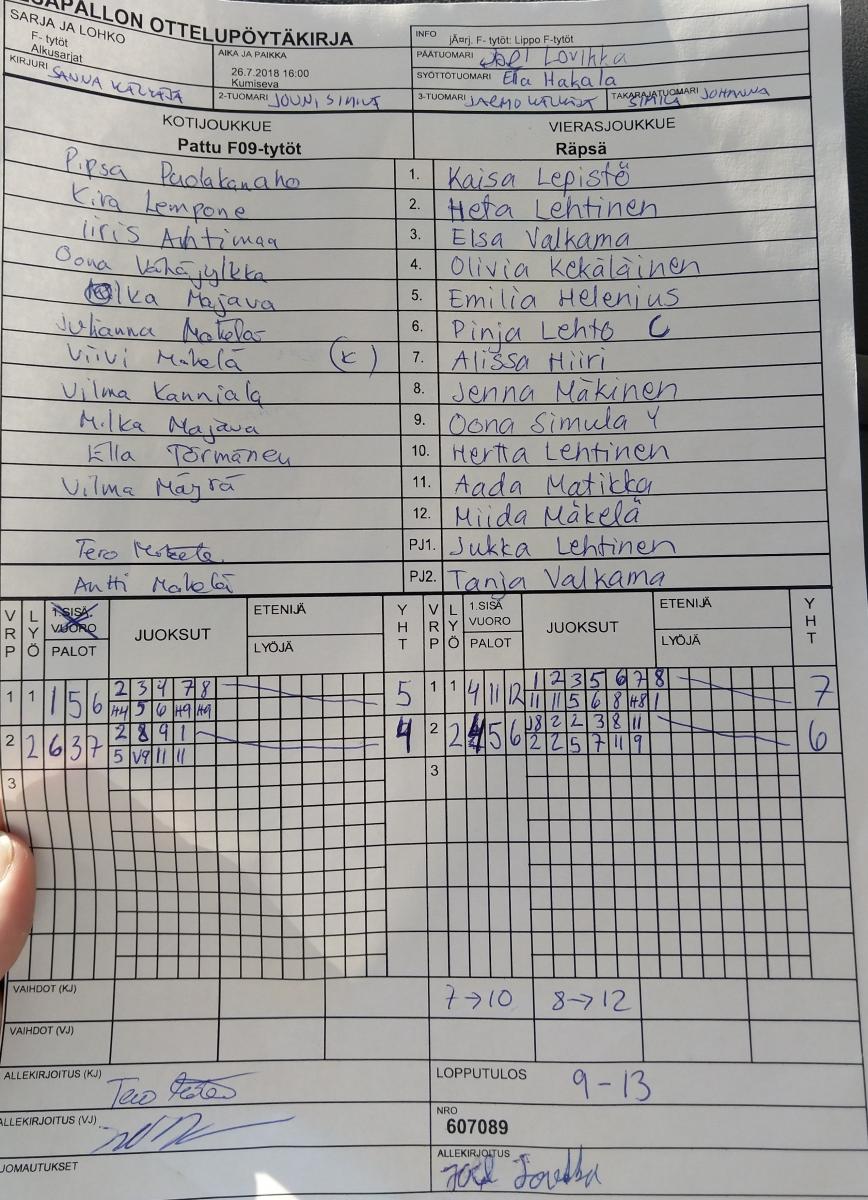 OTTELUPÖYTÄKIRJA
SARJA JA LOHKO
F- tytöt
Alkusarjat
KIRJURI
AIKA JA PAIKKA
26.7.2018 16:00
Kumiseva
2-TUOMARI JOUNI SIMILÄ
INFO jÄ¤rj. F- tytöt: Lippo F-tytöt
PÄÄTUOMARI
SYÖTTÖTUOMARI Ella Hakala
3-TUOMARI JARMO
TAKARAJATUOMARI SIMILÄ JOHANNA
KOTIJOUKKUE VIERASJOUKKUE
Pattu F09-tytöt Räpsä
Pipsa Puolakanaho 1. Kaisa Lepistö
Kira Lempone 2. Heta Lehtinen
Iiris Ahtimaa 3. Elsa Valkama
Oona Vähäjylkkä 4. Olivia Kekäläinen
Majava 5. Emilia Helenius
Julianna 6. Pinja Lehto C
Viivi Mäkelä (K) 7. Alissa Hiiri
Vilma Kanniala 8. Jenna Mäkinen
Milka Majava 9. Oona Simula Y
Ella Törmänen 10. Hertta Lehtinen
Vilma Märsä 11. Aada Matikka
12. Miida Mäkelä
Tero PJ1. Jukka Lehtinen
Antti Mäkelä PJ2. Tanja Valkama
VRP LYÖ 1.SISÄ VUORO PALOT JUOKSUT ETENIJÄ LYÖJÄ YHT VRP LYÖ 1.SISÄ VUORO PALOT JUOKSUT ETENIJÄ LYÖJÄ YHT
1 1 1 5 6 2 3 4 7 8 5 1 1 4 11 12 1 2 3 5 6 7 8 7
H4 5 6 H9 H9 11 11 5 6 8 H8 1
2 2 6 3 7 2 8 9 1 4 2 2 4 5 6 J8 2 2 3 8 11 6
5 V9 11 11 2 2 5 7 11 9
3 3
VAIHDOT (KJ) 7→10 8→12
VAIHDOT (VJ)
ALLEKIRJOITUS (KJ) Tero
LOPPUTULOS 9-13
ALLEKIRJOITUS (VJ)
NRO
607089
HUOMAUTUKSET
ALLEKIRJOITUS